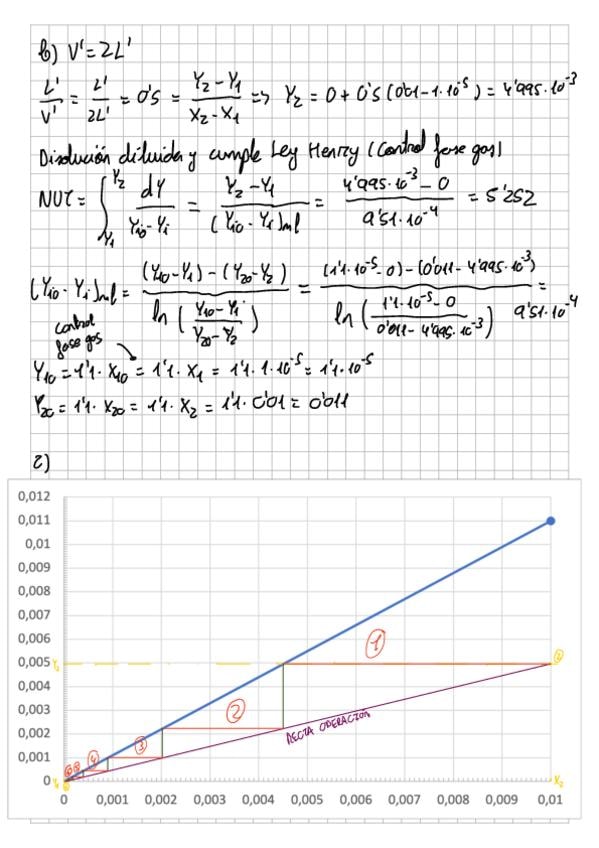 b) V' = 2L'
L'/V' = L'/2L' = 0'5 = (Y2 - Y1)/(X2 - X1) => Y2 = 0 + 0'5 (0'01 - 1·10^-5) = 4'995·10^-3
Disolución diluida y cumple Ley Henry (Control fase gas)
NUT = ∫_Y1^Y2 dY/(Yio - Yi) = (Y2 - Y1)/(Yio - Yi)ml = (4'995·10^-3 - 0)/(9'51·10^-4) = 5'252
(Yio - Yi)ml = ((Y10 - Y1) - (Y20 - Y2))/ln((Y10 - Y1)/(Y20 - Y2)) = ((1'1·10^-5 - 0) - (0'011 - 4'995·10^-3))/ln((1'1·10^-5 - 0)/(0'011 - 4'995·10^-3)) = 9'51·10^-4
control
fase gas
Y10 = 1'1·X10 = 1'1·X1 = 1'1·1·10^-5 = 1'1·10^-5
Y20 = 1'1·X20 = 1'1·X2 = 1'1·0'01 = 0'011
2)
0,012
0,011
0,01
0,009
0,008
0,007
0,006
0,005
0,004
0,003
0,002
0,001
0
1
2
3
4
RECTA OPERACIÓN
X2
0 0,001 0,002 0,003 0,004 0,005 0,006 0,007 0,008 0,009 0,01